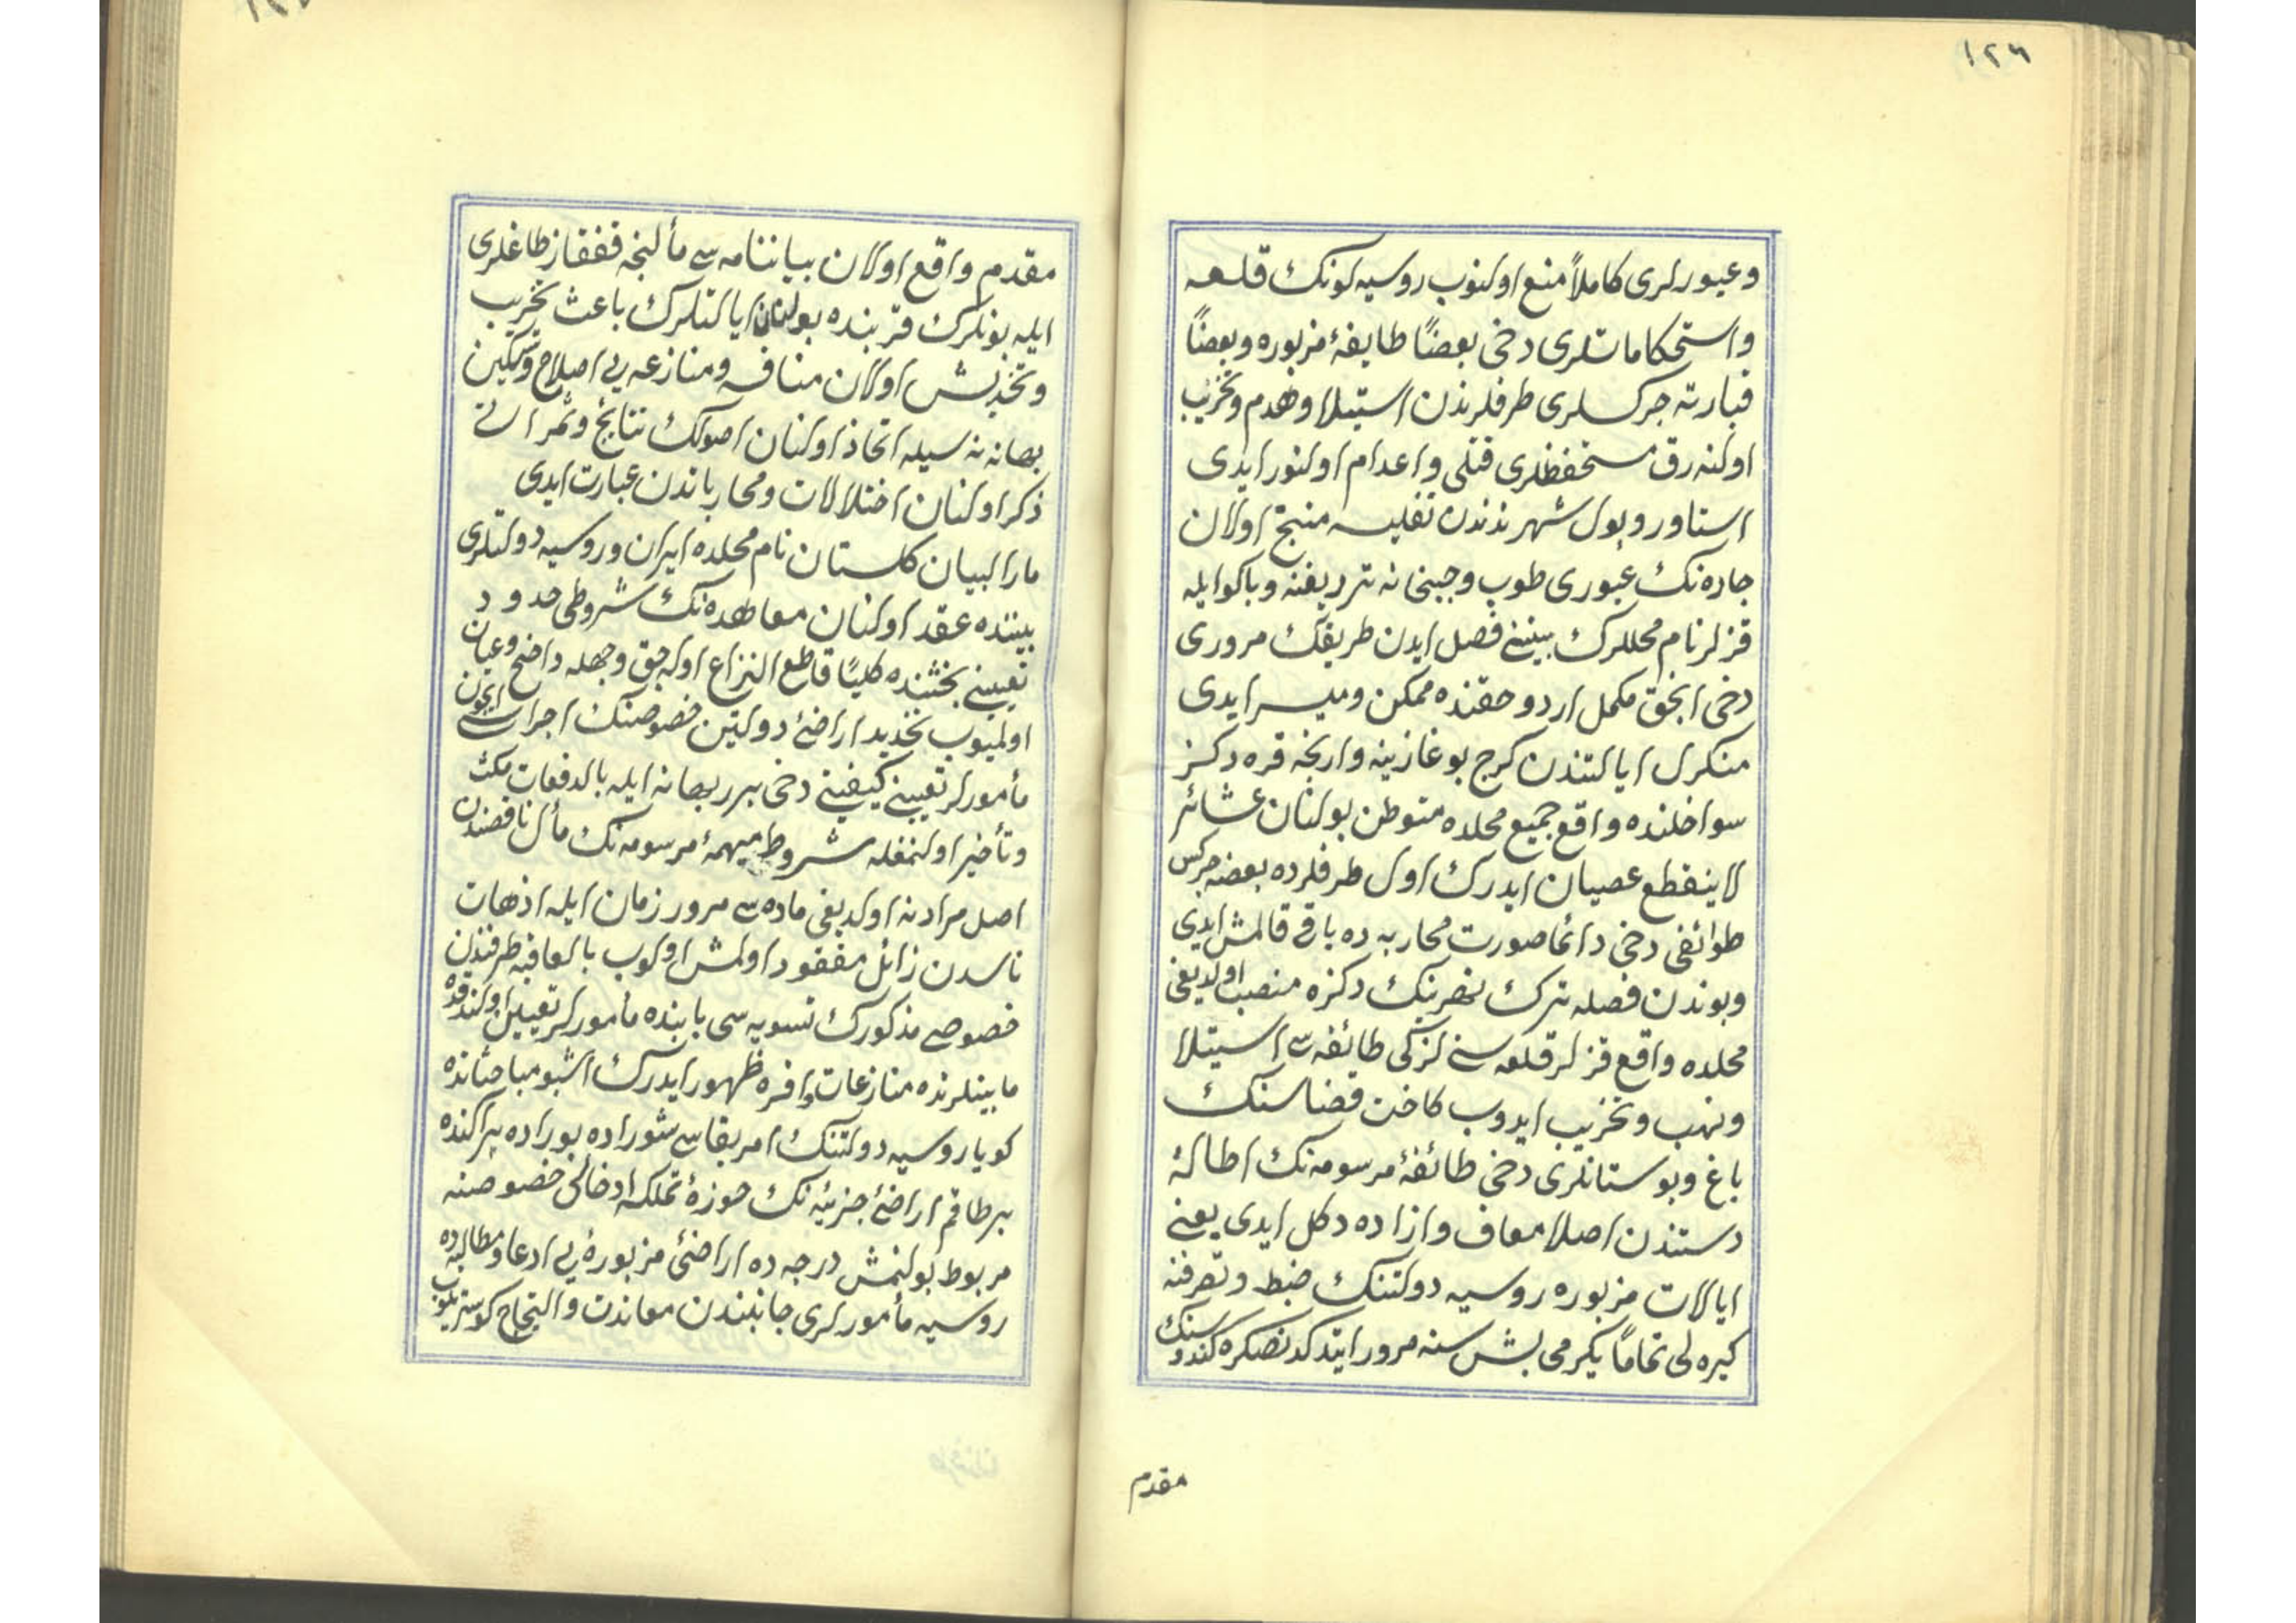 ١٢٦
وعبورلری كاملاً منع اولنوب روسیه لونك قلعه
واستحكاماتلری دخی بعضاً طایفهٔ مزبوره وبعضاً
قبارته جركسلری طرفلرندن استیلا وهدم وتخریب
اولنه رق مستحفظلری قتلی واعدام اولنور ایدی
استاوروپول شهرندندن تفلیسه منتج اولان
جاده نك عبوری طوپ وجبخانه تردیفنه وباكو ایله
قزلر نام محللرك بیننی فصل ایدن طریقك مروری
دخی انجق مكمل اردو حقنده ممكن ومیسر ایدی
منكرل ایالتندن كرج بوغازینه وارنجه قره دكز
سواحلنده واقع جمیع محلده متوطن بولنان عشائر
لاینقطع عصیان ایدرك اول طرفلرده بعض چركس
طوائفی دخی دائما صورت محاربه ده باقی قالمش ایدی
وبوندن فضله ترك نهرینك دكزه منصب اولدیغی
محلده واقع قزلر قلعه سنی لزكی طائفه سی استیلا
ونهب وتخریب ایدوب كاخت قضاسنك
باغ وبوستانلری دخی طائفهٔ مرسومه نك اطالهٔ
دستندن اصلا معاف وازاده دكل ایدی یعنی
ایالات مزبوره روسیه دولتنك ضبط وتصرفنه
كیره لی تماماً یكرمی بش سنه مرور ایتدكدنصكره كندوسنك
مقدم
مقدم واقع اولان بیاننامه سی مألنجه قفقاز طاغلری
ایله بونلرك قربنده بولنان ایالتلرك باعث تخریب
وتخدیش اولان منافسه ومنازعه یی اصلاح وتسكین
بهانه سیله اتخاذ اولنان اصولك نتایج وثمراتی
ذكر اولنان اختلالات ومحارباتدن عبارت ایدی
مارالبیان كلستان نام محلده ایران وروسیه دولتلری
بیننده عقد اولنان معاهده نك شروطی حدود
تعیینی بحثنده كلیاً قاطع النزاع اوله جق وجهله واضح وعیان
اولمیوب تحدید اراضئ دولتین خصوصنك اجراسی ایچون
مأمورلر تعیینی كیفیتی دخی برر بهانه ایله بالدفعات مكث
وتأخیر اولنمغله شروط مبهمهٔ مرسومه نك مأل ناقصندن
اصل مراد نه اولدیغی ماده سی مرور زمان ایله اذهان
ناسدن زائل مفقود اولمش اولوب بالعاقبه طرفیندن
خصوصی مذكورك تسویه سی بابنده مأمورلر تعیین اولندقده
مابینلرنده منازعات وافره ظهور ایدرك اشبو مباحثاتده
كویا روسیه دولتنك امر بقاسی شوراده بوراده پراكنده
برطاقم اراضئ جزئیه نك حوزهٔ تملكه ادخالی خصوصنه
مربوط بولنمش درجه ده اراضئ مزبورهٔ یی ادعا ومطالبه ده
روسیه مأمورلری جانبندن معاندت والتجاج كوستریلوب